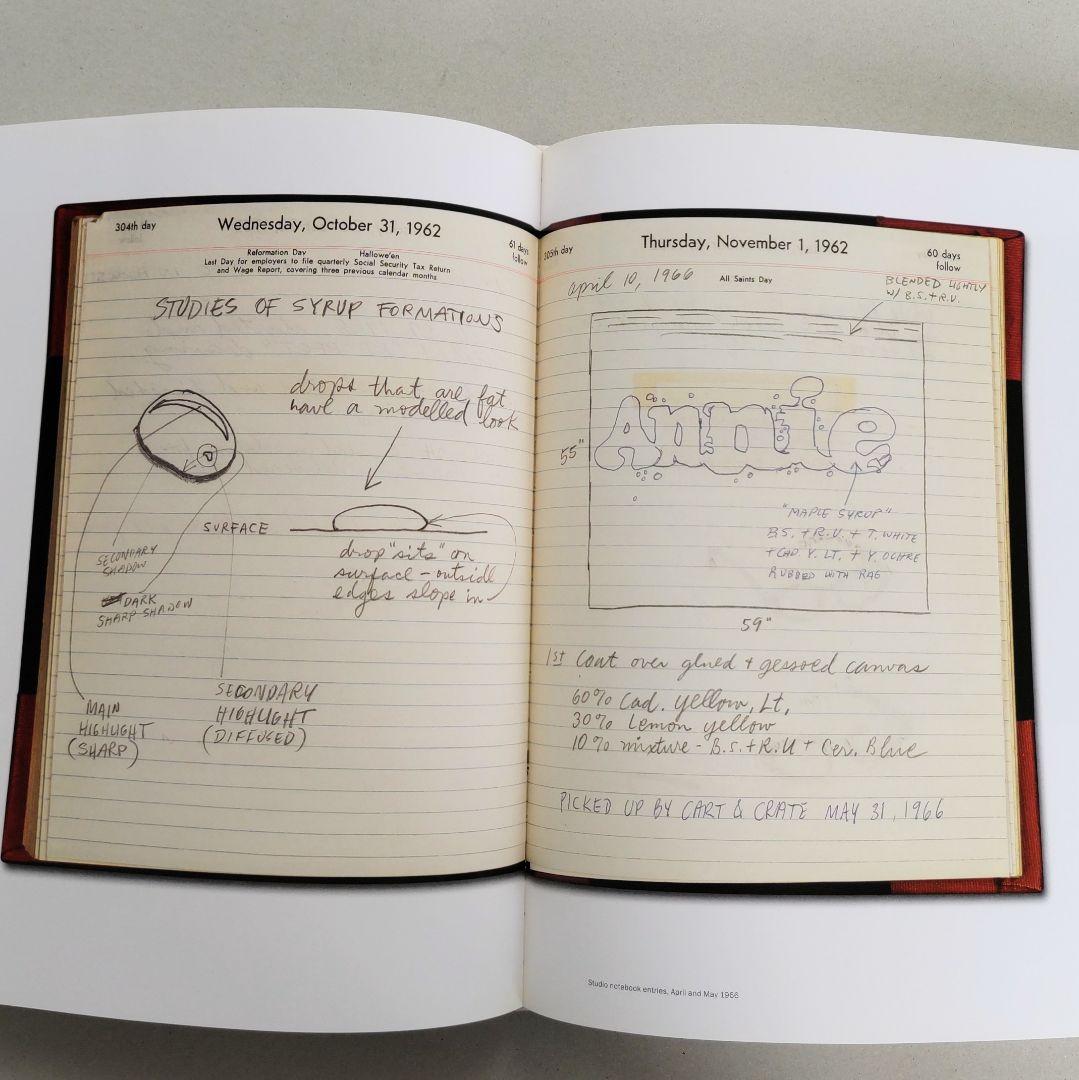 304th day
Wednesday, October 31, 1962
61 days
follow
Reformation Day Hallowe'en
Last Day for employers to file quarterly Social Security Tax Return
and Wage Report, covering three previous calendar months
STUDIES OF SYRUP FORMATIONS
drops that are fat
have a modelled look
SURFACE
drop "sits" on
surface - outside
edges slope in
SECONDARY
SHADOW
DARK
SHARP SHADOW
MAIN
HIGHLIGHT
(SHARP)
SECONDARY
HIGHLIGHT
(DIFFUSED)
305th day
Thursday, November 1, 1962
60 days
follow
april 10, 1966
All Saints Day
BLENDED LIGHTLY
W/ B.S. + R.U.
Annie
55"
"MAPLE SYRUP"
B.S. + R.U. + T. WHITE
+ CAD. Y. LT. + Y. OCHRE
RUBBED WITH RAG
59"
1st Coat over glued + gessoed canvas
60% Cad. yellow, Lt.
30% Lemon yellow
10% mixture - B.S. + R.U + Cer. Blue
PICKED UP BY CART & CRATE MAY 31, 1966
Studio notebook entries, April and May 1966